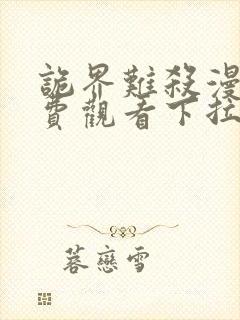 詭界難殺漫
費觀看下拉
蓉戀雪